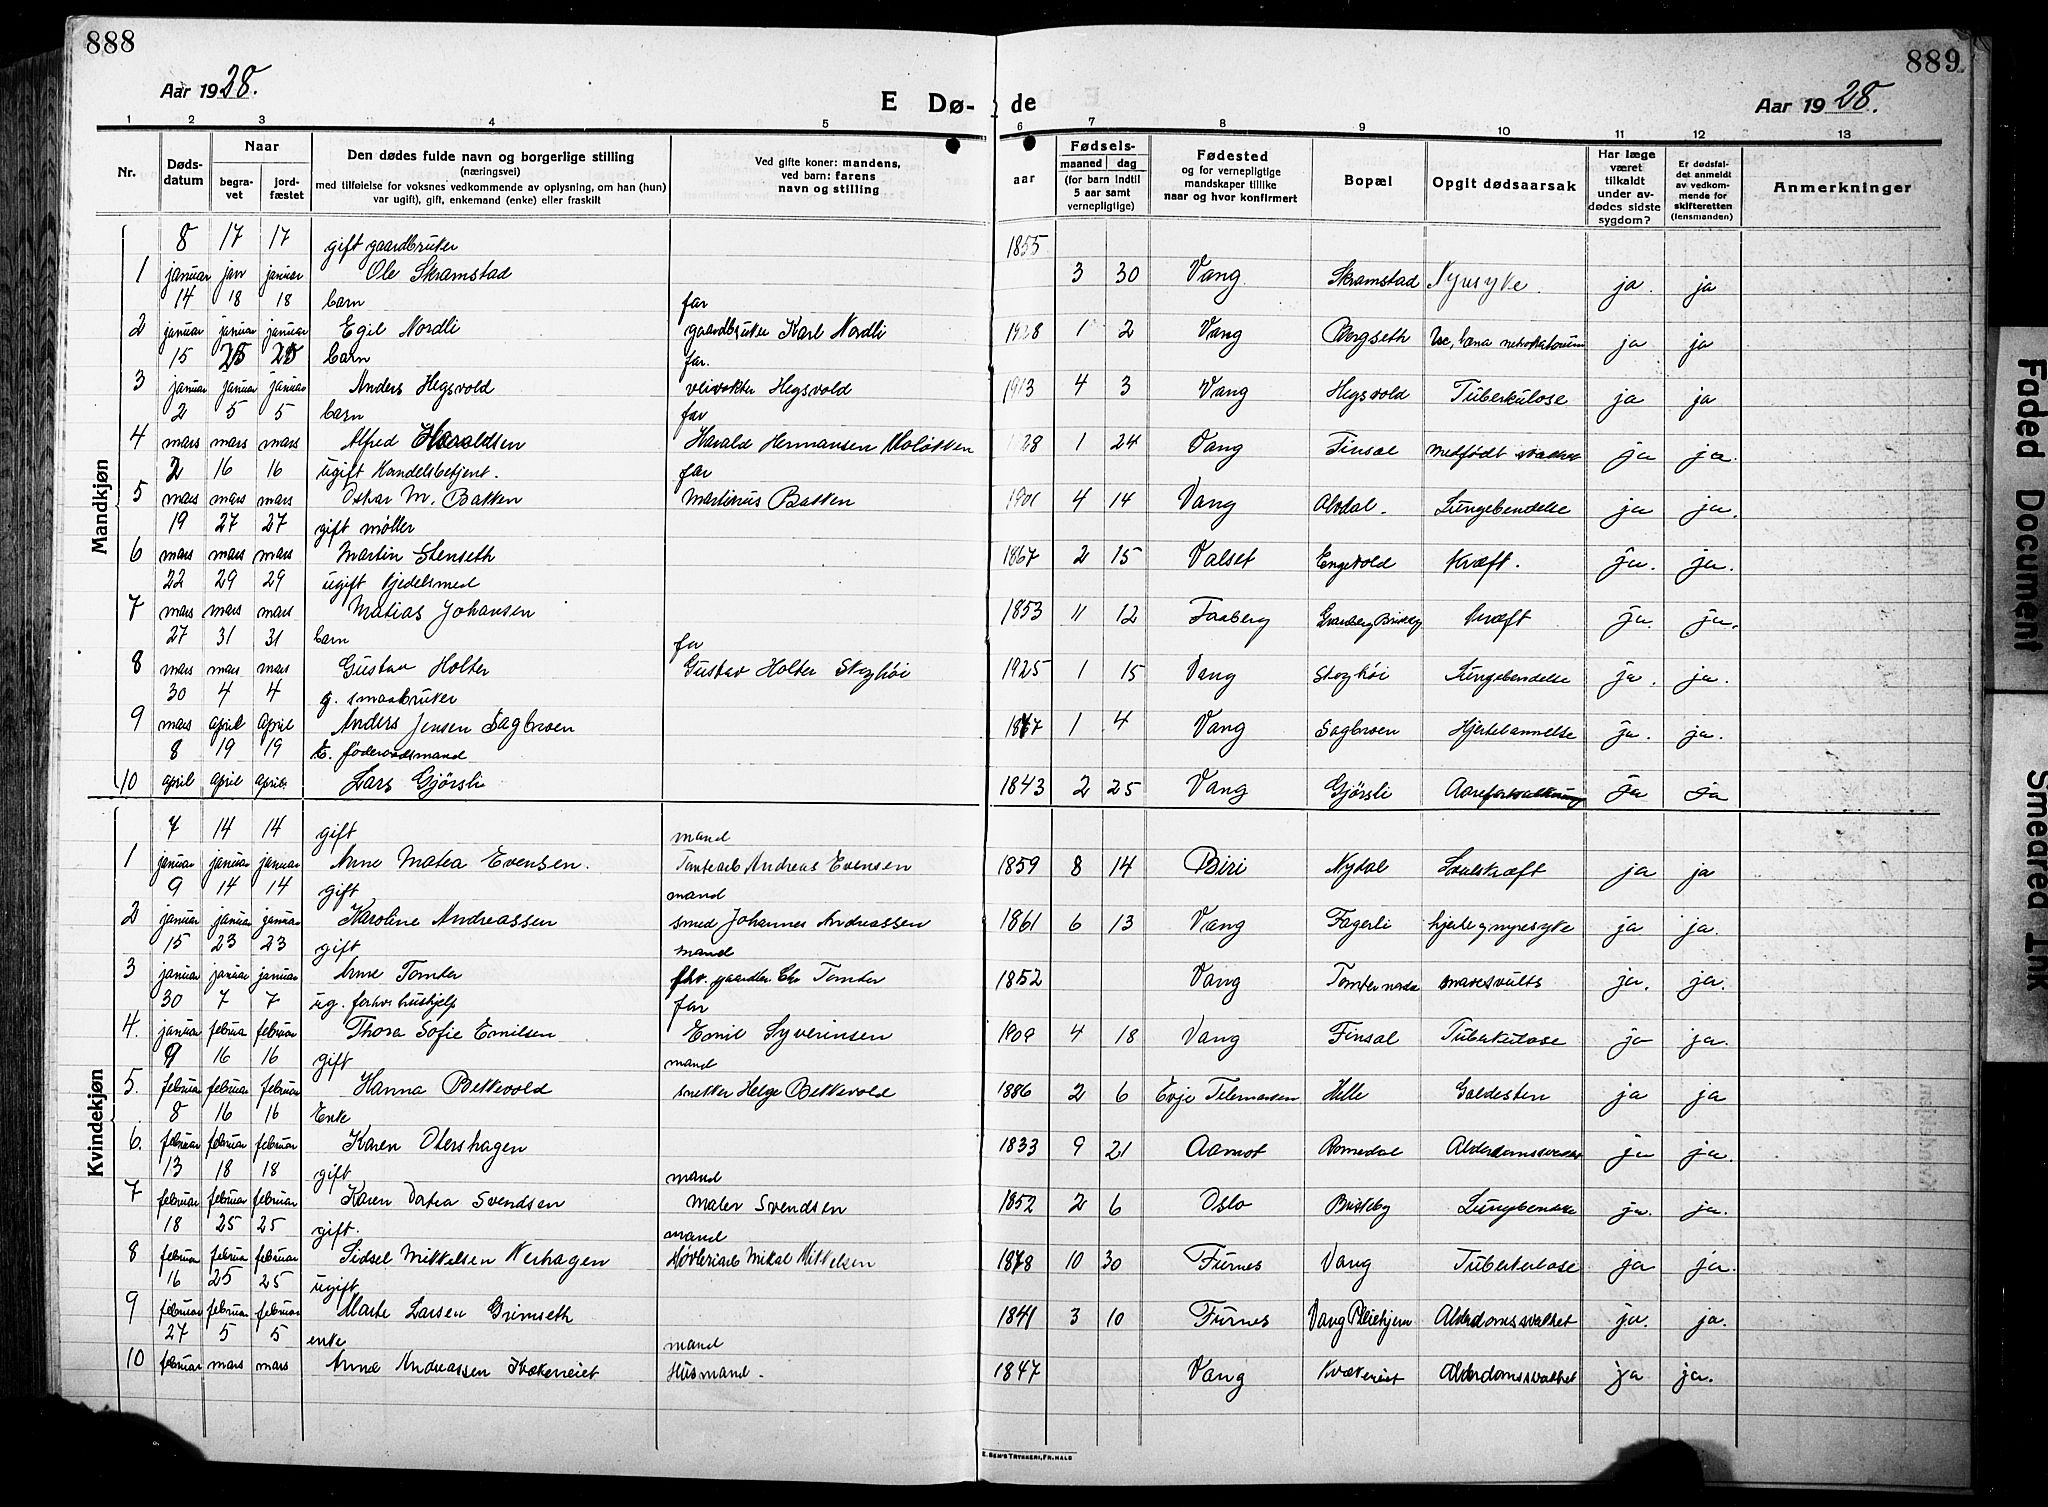 888
889
Aar 1928.
E Dø-
de
Aar 1928.
1 2 3 4 5 6 7 8 9 10 11 12 13
Nr.
Døds-
datum
Naar
begra-
vet
jord-
fæstet
Den dødes fulde navn og borgerlige stilling
(næringsvei)
med tilføielse for voksnes vedkommende av oplysning, om han (hun)
var ugift), gift, enkemand (enke) eller fraskilt
Ved gifte koner: mandens,
ved barn: farens
navn og stilling
aar
Fødsels-
maaned dag
(for barn indtil
5 aar samt
vernepligtige)
Fødested
og for vernepligtige
mandskaper tillike
naar og hvor konfirmert
Bopæl
Opgit dødsaarsak
Har læge
været
tilkaldt
under av-
dødes sidste
sygdom?
Er dødsfal-
det anmeldt
av vedkom-
mende for
skifteretten
(lensmanden)
Anmerkninger
Mandkjøn
8 17 17 gift gaardbruker 1855
1 januar jan januar Ole Skramstad 3 30 Vang Skramstad Nyresyke ja ja
14 18 18 barn far
2 januar januar januar Egil Nordli gaardbruker Karl Nordli 1928 1 2 Vang Bergseth ja ja
15 25 25 barn far.
3 januar januar januar Anders Hegsvold veivokter Hegsvold 1913 4 3 Vang Hegsvold Tuberkulose ja ja
2 5 5 barn far
4 mars mars mars Alfred Haraldsen Harald Hermansen 1928 1 24 Vang Finsal medfødt svakhet ja ja.
2 16 16 ugift Handelsbetjent. far
5 mars mars mars Oskar M. Bakken Martinus Bakken 1901 4 14 Vang Alvdal. Lungebendelse ja ja.
19 27 27 gift møller
6 mars mars mars Martin Stenseth 1867 2 15 Valset Engevold Kræft. ja. ja.
22 29 29 ugift Gjedelsmed
7 mars mars mars Matias Johansen 1853 11 12 Faaberg Kræft ja. ja.
27 31 31 barn far
8 mars mars mars Gustav Holter Gustav Holter Steghøi 1925 1 15 Vang Steghøi Lungebendelse ja. ja.
30 4 4 g. smaabruker
9 mars april april Anders Jensen Sagbroen 1867 1 4 Vang Sagbroen Hjertelammelse ja. ja.
8 19 19 E. føderaadsmand
10 april april april Lars Gjørsli 1843 2 25 Vang Gjørsli Aareforkalkning Ja Ja
Kvindekjøn
7 14 14 gift mand
1 januar januar januar Anne Matea Evensen. Tomtearb. Andreas Evensen 1859 8 14 Biri Nydal ja ja
9 14 14 gift mand
2 januar januar januar Karoline Andreassen smed Johannes Andreassen 1861 6 13 Vang Fagerli hjerte og nyresyke ja ja.
15 23 23 gift mand
3 januar januar januar Anne Tomter fhv. gaardbr. Chr Tomter 1852 Vang Tomter nordre mavesvulst ja. ja.
30 7 7 ug. forhv. hushjelp far
4. januar februar februar Thora Sofie Emilsen Emil Syverinsen 1909 4 18 Vang Finsal Tuberkulose ja ja.
9 16 16 gift mand
5. februar februar februar Hanna Bekkevold snekker Helge Bekkevold 1886 2 6 Evje Telemarken Helle Galdesten ja ja
8 16 16 Enke
6. februar februar februar Karen Otershagen 1833 9 21 Aamot Romedal Alderdomssvakhet ja ja.
13 18 18 gift mand
7 februar februar februar Karen Dotea Svendsen Maler Svendsen 1852 2 6 Oslo Briskeby Lungebendelse ja. ja.
18 25 25 gift. mand
8 februar februar februar Sidsel Mikkelsen Nerhagen Høvleriarb Mikal Mikkelsen 1878 10 30 Furnes Vang Tuberkulose ja ja.
16 25 25 ugift
9 februar februar februar Marte Larsen Grimseth 1841 3 10 Furnes Vang Pleiehjem Alderdomssvakhet ja. ja.
27 5 5 enke mand
10 februar mars mars Anna Andreassen Kvækerneiet Husmand. 1847 Vang Alderdomssvakhet ja ja.
E. SEM'S TRYKKERI, FR.HALD
Faded Document
Smeared Ink